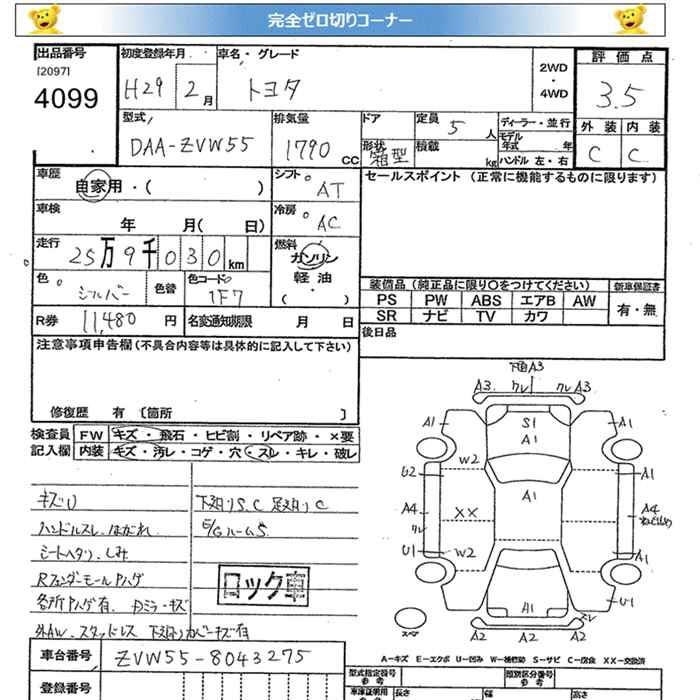 完全ゼロ切りコーナー
出品番号
[2097]
4099
初度登録年月
H29 2月
車名・グレード
トヨタ
2WD
・
4WD
評価点
3.5
外装 内装
C C
型式
DAA-ZVW55
排気量
1790 CC
ドア
形状
箱型
定員
5 人
積載
kg
ディーラー・並行
モデル
年式 年
ハンドル 左・右
車歴
自家用・( )
シフト
AT
セールスポイント (正常に機能するものに限ります)
車検
年 月( 日)
冷房
AC
走行
25万9千030 km
燃料
ガソリン
軽油
・
( )
色
シルバー
色替
色コード
1F7
装備品 (純正品に限り○をつけてください)
新車保証書
PS PW ABS エアB AW
SR ナビ TV カワ
有・無
R券 11,480 円
名変通知期限 月 日
後日品
注意事項申告欄 (不具合内容等は具体的に記入して下さい)
修復歴 有 [箇所 ]
検査員
記入欄
FW キズ・飛石・ヒビ割・リペア跡・×要
内装 キズ・汚レ・コゲ・穴・スレ・キレ・破レ
キズU
ハンドルスレ、はがれ
シートヘタリ、しみ
RフェンダーモールPハゲ
各所Pハゲ有、Dミラーキズ
外AW、スタッドレス 下廻りカバーキズ有
下廻りS.C 足廻りC
E/GルームS
ロック車
下回A3
A3 クレ クレ A3
A1 S1 A1
A1
W2
U2 A1 A1
A4 XX A4
クレ
U1 W2 A1
A1 U1
スレ
スペア A2 A2
A-キズ E-エクボ U-凹み W-補修跡 S-サビ C-腐食 XX-交換済
車台番号 ZVW55-8043275
登録番号
型式指定番号
参考
類別区分番号
参考
車庫証明用
参考
長さ
幅
高さ